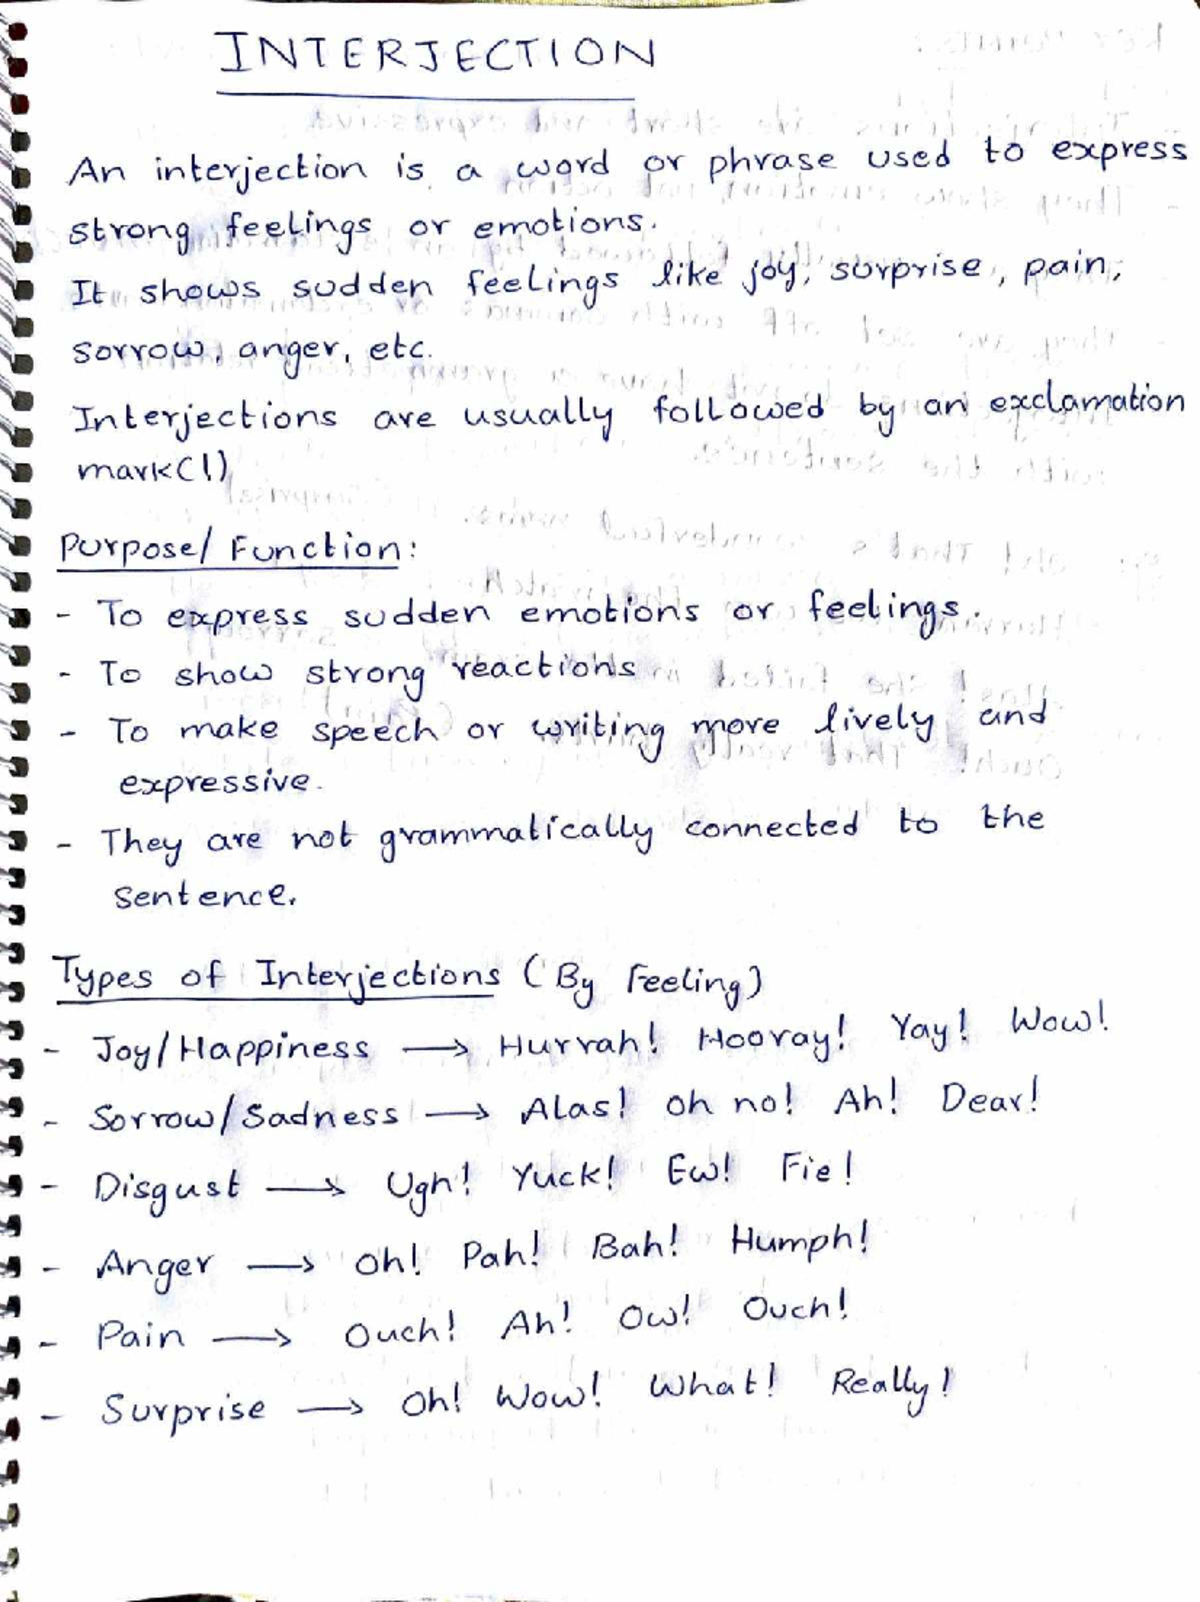 INTERJECTION
An interjection is a word or phrase used to express
strong feelings or emotions.
It shows sudden feelings like joy, surprise, pain,
sorrow, anger, etc.
Interjections are usually followed by an exclamation
mark(!)
Purpose/ Function:
- To express sudden emotions or feelings.
- To show strong reactions
- To make speech or writing more lively and
expressive.
- They are not grammatically connected to the
sentence.
Types of Interjections (By Feeling)
- Joy/Happiness → Hurrah! Hooray! Yay! Wow!
- Sorrow/Sadness → Alas! Oh no! Ah! Dear!
- Disgust → Ugh! Yuck! Ew! Fie!
- Anger → Oh! Pah! Bah! Humph!
- Pain → Ouch! Ah! Ow! Ouch!
- Surprise → Oh! Wow! What! Really!